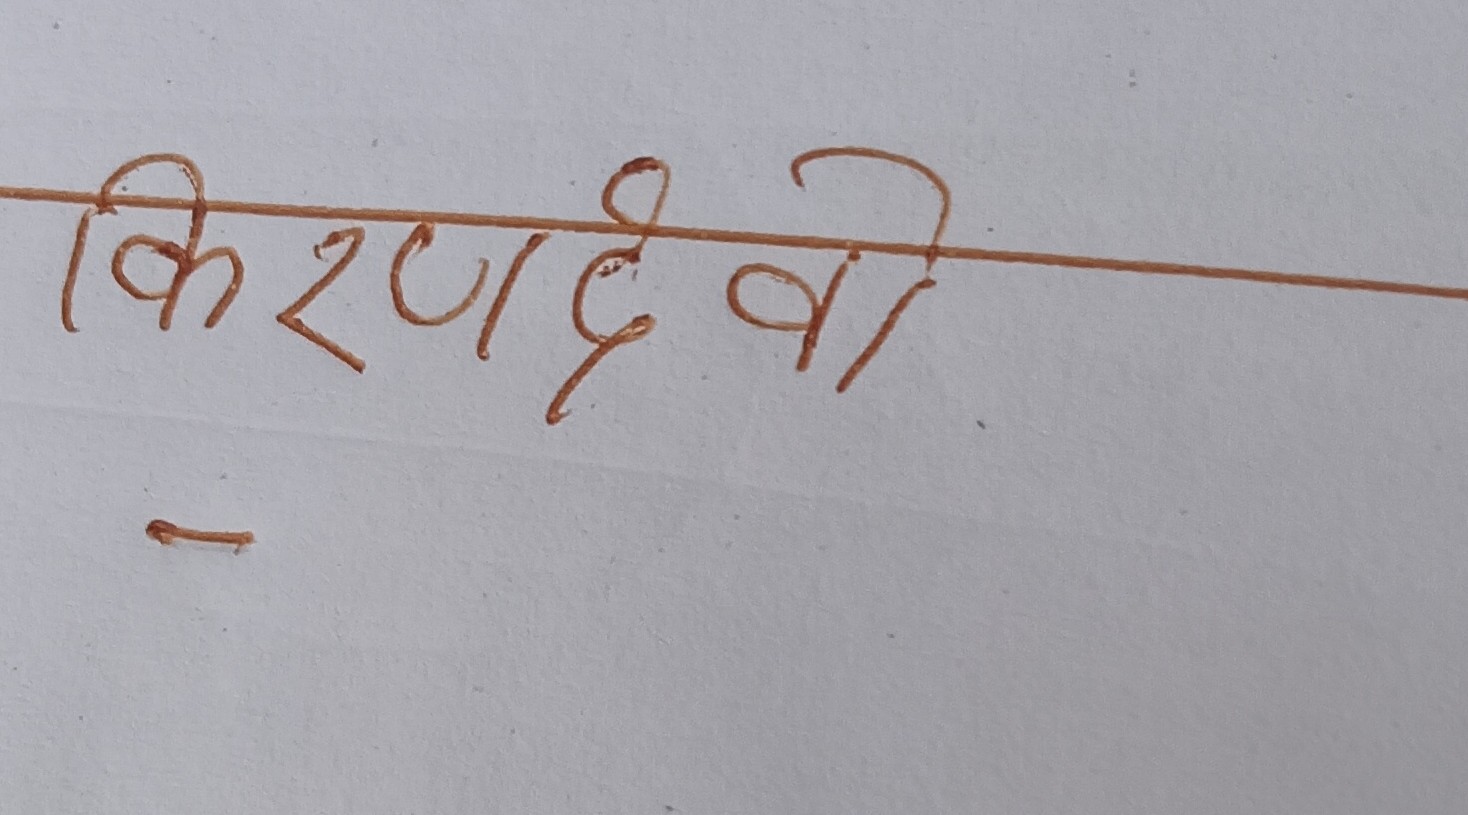 किरणदेवी
-